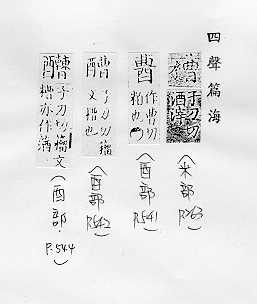 四聲篇海
子刀切
酒滓
(米部 P.763)
作曹切
粕也
(酉部 P.541)
子刀切籀
文糟也
(酉部 P.542)
子刀切籀文
糟亦作
(酉部 P.544)